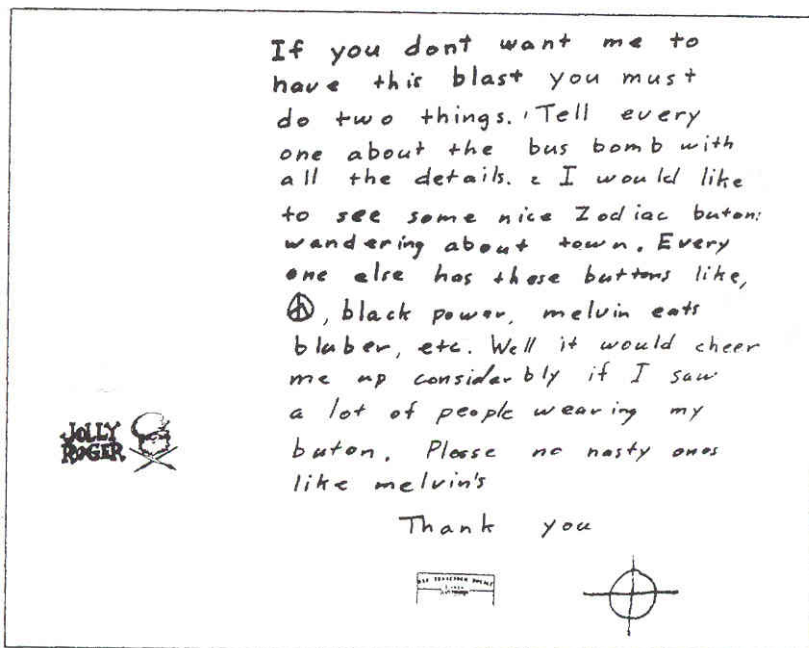 If you dont want me to
have this blast you must
do two things. 1 Tell every
one about the bus bomb with
all the details. 2 I would like
to see some nice Zodiac butons
wandering about town. Every
one else has these buttons like,
☮, black power, melvin eats
bluber, etc. Well it would cheer
me up considerbly if I saw
a lot of people wearing my
buton. Please no nasty ones
like melvin's
Thank you
JOLLY
ROGER